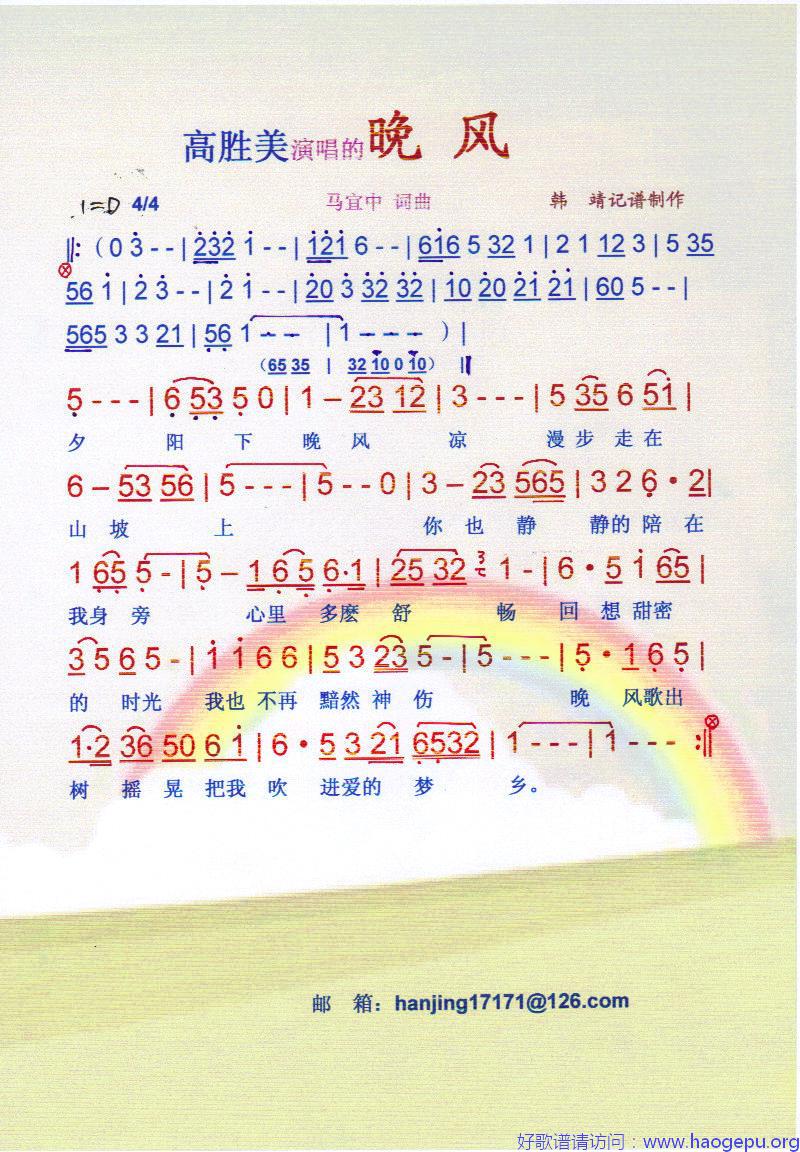 高胜美演唱的晚 风
1=D 4/4 马宜中 词曲 韩 靖记谱制作
‖:(0 3 - - | 232 1 - - | 121 6 - - | 616 5 32 1 | 2 1 12 3 | 5 35
56 1 | 2 3 - - | 2 1 - - | 20 3 32 32 | 10 20 21 21 | 60 5 - - |
565 3 3 21 | 56 1 - - | 1 - - - ) |
(65 35 | 32 10 0 10) ‖
5 - - - | 6 53 5 0 | 1 - 23 12 | 3 - - - | 5 35 6 51 |
夕 阳 下 晚 风 凉 漫 步 走 在
6 - 53 56 | 5 - - - | 5 - - 0 | 3 - 23 565 | 3 2 6 · 2 |
山 坡 上 你 也 静 静的 陪 在
1 65 5 - | 5 - 1 6 5 6·1 | 25 32 3 1 - | 6 · 5 1 65 |
我身 旁 心里 多麽 舒 畅 回 想 甜密
3 5 6 5 - | 1 1 6 6 | 5 3 23 5 - | 5 - - - | 5 · 1 6 5 |
的 时光 我也 不再 黯然 神 伤 晚 风歌出
1·2 36 50 6 1 | 6 · 5 3 21 6532 | 1 - - - | 1 - - - :‖
树 摇 晃 把我 吹 进爱的 梦 乡。
邮 箱：hanjing17171@126.com
好歌谱请访问：www.haogepu.org